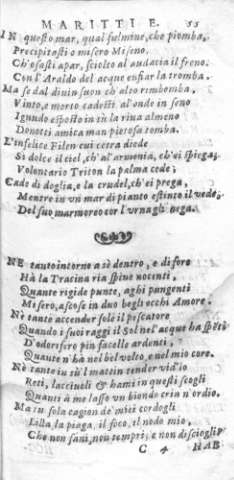 MARITTIE. 55
IN questo mar, qual fulmine, che piomba,
Precipitasti o misero Miseno.
Ch'osasti apar, sciolto al audacia il freno.
Con l'Araldo del acque enfiar la tromba.
Ma se dal divin suon ch'alto rimbomba,
Vinto, e morto cadesti al'onde in seno
Ignudo esposto in su la riua almeno
Donotti amica man pietosa tomba.
L'infelice Filen cui cetra diede
Si dolce il ciel, ch'al'armonia, ch'ei spiega,
Volontario Triton la palma cede;
Cade di doglia, e la crudel, ch'ei prega,
Mentre in vn mar di pianto estinto il vede,
Del suo marmoreo cor l'vrna gli nega.
NE tanto intorno a sè dentro, e di fore
Hà la Tracina ria spine nocenti,
Quante rigide punte, aghi pungenti
Misero, ascose in duo begli occhi Amore.
Nè tante accender solè il pescatore
Quando i suoi raggi il Sol nel'acque hà spẽti
D'odorifero pin facelle ardenti,
Quante n'hà nel bel volto, e nel mio core.
Nè tante iu sù'l mattin tender via io
Reti, lacciuoli & hami in questi scogli
Quanti à me lasso vn biondo crin n'ordio.
Ma tu sola cagion de' miei cordogli
Lilla, la piaga, il foco, e'l nodo mio,
Che non sani, non tempri, e non disciogli?
C 4 HAB